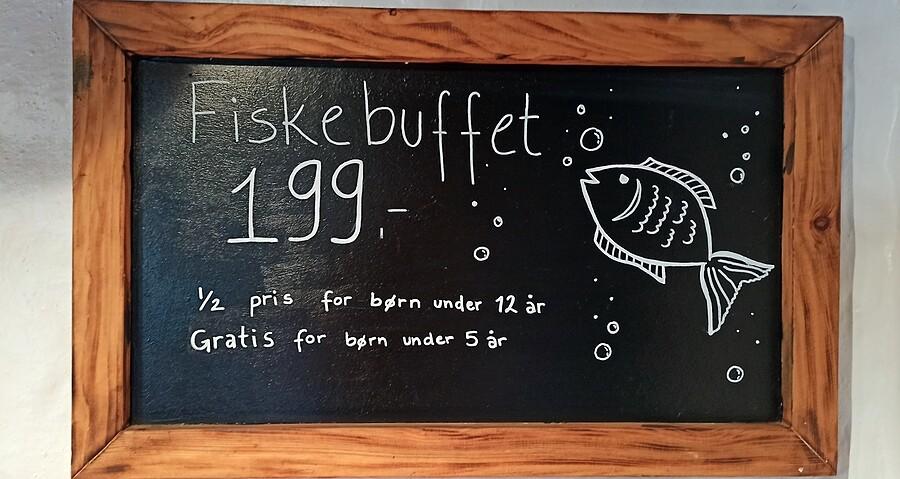 Fiskebuffet
199,-
1/2 pris for børn under 12 år
Gratis for børn under 5 år